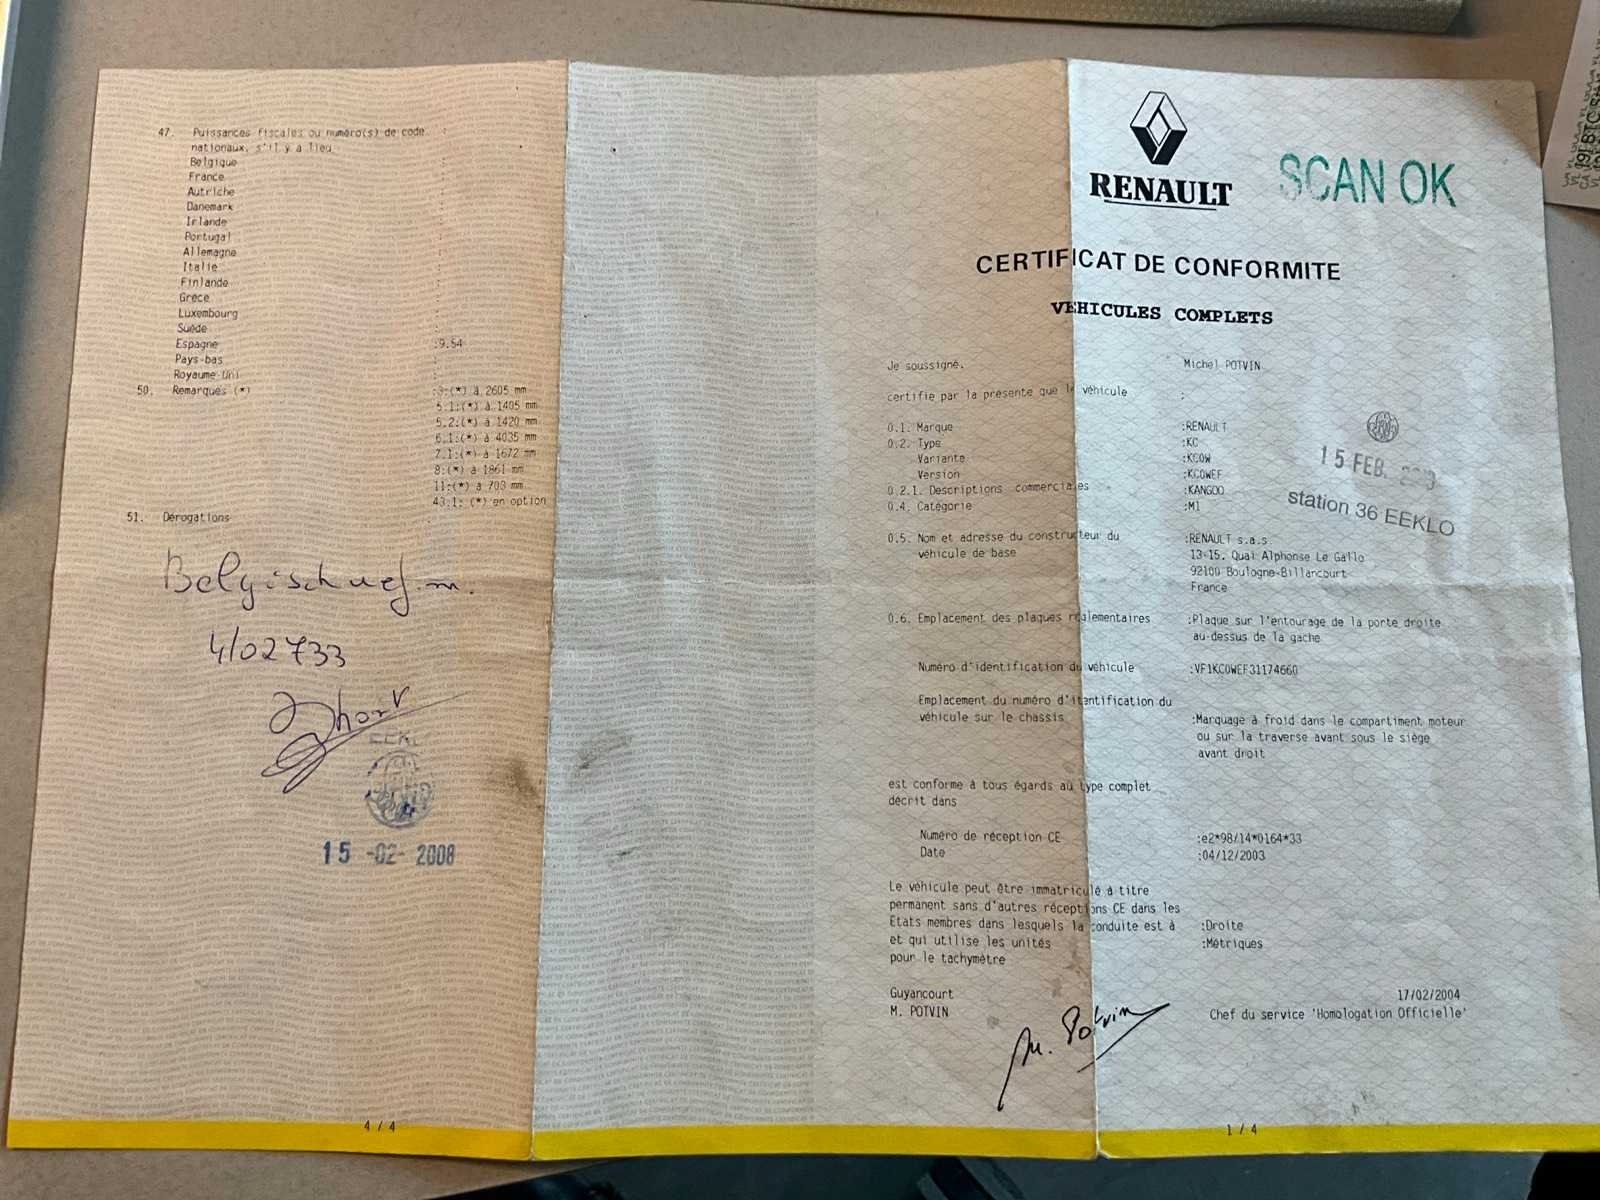 47. Puissances fiscales ou numéro(s) de code :
nationaux, s'il y a lieu
Belgique :
France :
Autriche :
Danemark :
Irlande :
Portugal :
Allemagne :
Italie :
Finlande :
Grèce :
Luxembourg :
Suède :
Espagne :9.54
Pays-bas :
Royaume-Uni :
50. Remarques (*) :3:(*) à 2605 mm
5.1:(*) à 1405 mm
5.2:(*) à 1420 mm
6.1:(*) à 4035 mm
7.1:(*) à 1672 mm
8:(*) à 1861 mm
11:(*) à 703 mm
43.1: (*) en option
51. Dérogations :
4/02733
EEKL
15 -02- 2008
4 / 4
RENAULT
SCAN OK
CERTIFICAT DE CONFORMITE
VEHICULES COMPLETS
Je soussigné, Michel POTVIN
certifie par la présente que le véhicule :
0.1. Marque :RENAULT
0.2. Type :KC
Variante :KC0W
Version :KC0WEF
0.2.1. Descriptions commerciales :KANGOO
0.4. Catégorie :M1
15 FEB.
station 36 EEKLO
0.5. Nom et adresse du constructeur du :RENAULT s.a.s
véhicule de base 13-15, Quai Alphonse Le Gallo
92100 Boulogne-Billancourt
France
0.6. Emplacement des plaques réglementaires :Plaque sur l'entourage de la porte droite
au-dessus de la gache
Numéro d'identification du véhicule :VF1KC0WEF31174660
Emplacement du numéro d'identification du
véhicule sur le chassis :Marquage à froid dans le compartiment moteur
ou sur la traverse avant sous le siège
avant droit
est conforme à tous égards au type complet
décrit dans
Numéro de réception CE :e2*98/14*0164*33
Date :04/12/2003
Le véhicule peut être immatriculé à titre
permanent sans d'autres réceptions CE dans les
Etats membres dans lesquels la conduite est à :Droite
et qui utilise les unités :Métriques
pour le tachymètre
Guyancourt 17/02/2004
M. POTVIN Chef du service 'Homologation Officielle'
M. Potvin
1 / 4